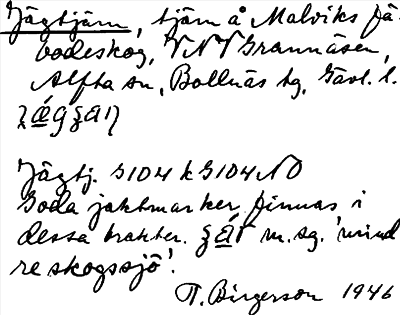 Jägtjärn, tjärn å Malviks fä-
bodeskog, VNV Grannäsen,
Alfta sn, Bollnäs tg, Gävl. l.
Jägtj. S104 k S104 NO
Goda jaktmarker finnas i
dessa trakter. m. sg. 'mind
re skogssjö'.
T. Birgerson 1946